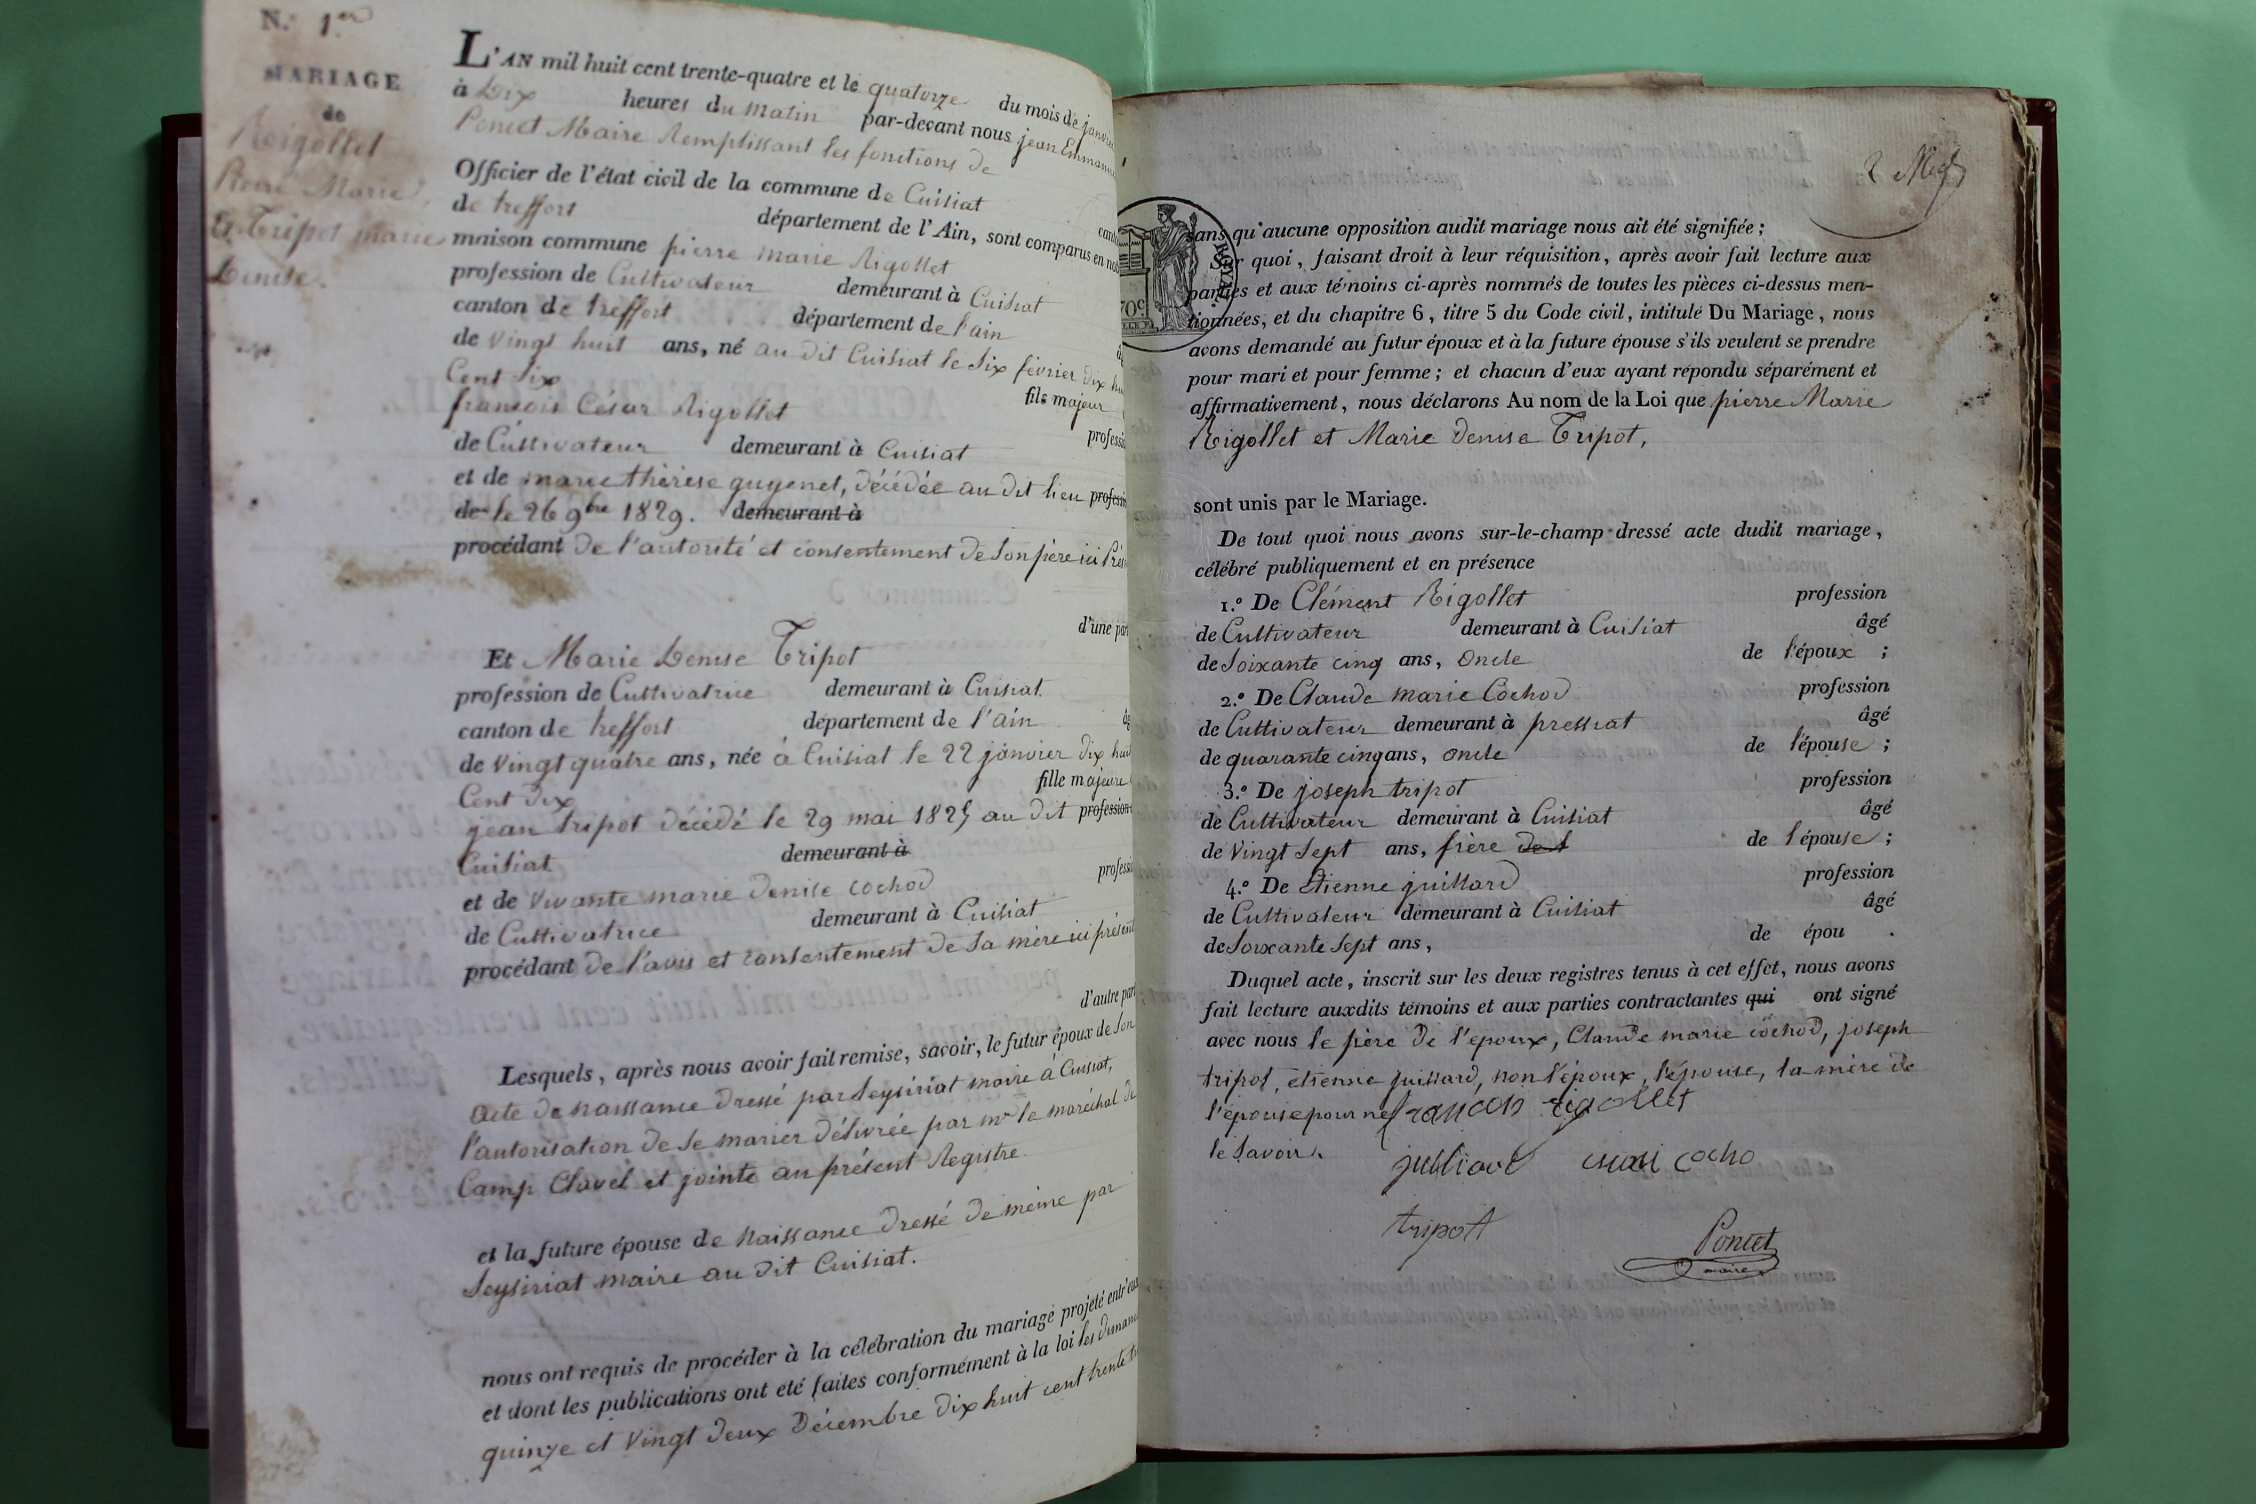 N.° 1.er
MARIAGE
de
Rigollet
Pierre Marie,
Et Tripot marie
Denise.
L'AN mil huit cent trente-quatre et le quatorze du mois de janvier
à Dix heures du matin par-devant nous jean Emmanuel
Poncet Maire Remplissant les fonctions de
Officier de l'état civil de la commune de Cuisiat
canton
de treffort département de l'Ain, sont comparus en notre
maison commune pierre marie Rigollet
profession de Cultivateur demeurant à Cuisiat
canton de treffort département de l'ain
de vingt huit ans, né au dit Cuisiat le Six février dix huit
Cent Six fils majeur
françois César Rigollet
profession
de Cultivateur demeurant à Cuisiat
et de marie thérèse guyenet, décédée au dit lieu profession
de le 26 9bre 1829. demeurant à
procédant de l'autorité et consentement de son père ici Présent
d'une part
Et Marie Denise Tripot
profession de Cultivatrice demeurant à Cuisiat
canton de treffort département de l'ain
de vingt quatre ans, née à Cuisiat le 22 janvier dix huit
Cent dix fille majeure
jean tripot décédé le 29 mai 1825 au dit profession
Cuisiat demeurant à
et de vivante marie denise cochod profession
de Cultivatrice demeurant à Cuisiat
procédant de l'avis et consentement de Sa mère ici présente
d'autre part
Lesquels, après nous avoir fait remise, savoir, le futur époux de Son
acte de naissance dressé par Seysiriat maire à Cuisiat,
l'autorisation de se marier délivrée par mr le maréchal de
Camp Clavel et jointe au présent Registre
et la future épouse de naissance dressé de même par
Seysiriat maire au dit Cuisiat.
nous ont requis de procéder à la célébration du mariage projeté entr'eux
et dont les publications ont été faites conformément à la loi les dimanches
quinze et vingt deux Décembre dix huit cent trente trois
2
ROYAL
70c
sans qu'aucune opposition audit mariage nous ait été signifiée ;
Sur quoi, faisant droit à leur réquisition, après avoir fait lecture aux
parties et aux témoins ci-après nommés de toutes les pièces ci-dessus men-
tionnées, et du chapitre 6, titre 5 du Code civil, intitulé Du Mariage, nous
avons demandé au futur époux et à la future épouse s'ils veulent se prendre
pour mari et pour femme ; et chacun d'eux ayant répondu séparément et
affirmativement, nous déclarons Au nom de la Loi que pierre Marie
Rigollet et Marie Denise Tripot,
sont unis par le Mariage.
De tout quoi nous avons sur-le-champ dressé acte dudit mariage,
célébré publiquement et en présence
1.° De Clément Rigollet profession
de Cultivateur demeurant à Cuisiat âgé
de Soixante cinq ans, Oncle de l'époux ;
2.° De Claude marie Cochod profession
de Cultivateur demeurant à pressiat âgé
de quarante cinq ans, oncle de l'épouse ;
3.° De joseph tripot profession
de Cultivateur demeurant à Cuisiat âgé
de vingt Sept ans, frère de l de l'épouse ;
4.° De Etienne juillard profession
de Cultivateur demeurant à Cuisiat âgé
de Soixante Sept ans, de épou .
Duquel acte, inscrit sur les deux registres tenus à cet effet, nous avons
fait lecture auxdits témoins et aux parties contractantes qui ont signé
avec nous le père de l'époux, Claude marie cochod, joseph
tripot, etienne juillard, non l'époux, l'épouse, la mère de
l'épouse pour ne francois rigollet
le Savoir.
juilliard mari cocho
tripot
Poncet
maire